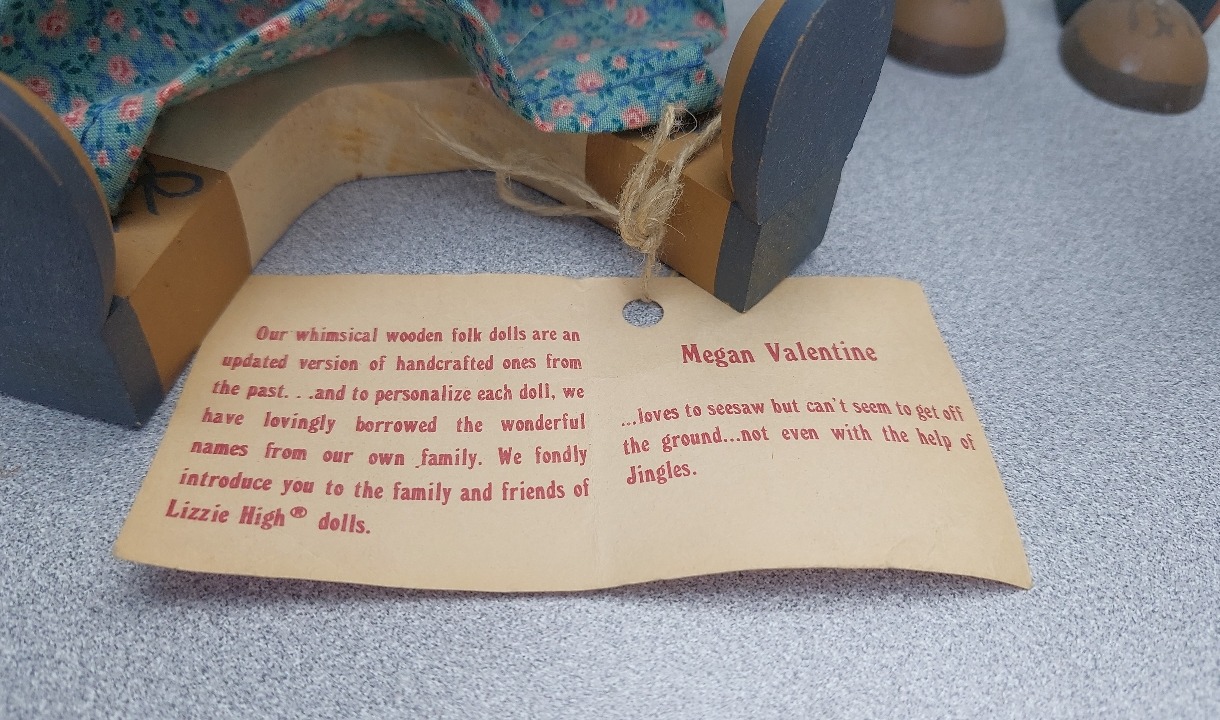 Our whimsical wooden folk dolls are an
updated version of handcrafted ones from
the past. . .and to personalize each doll, we
have lovingly borrowed the wonderful
names from our own family. We fondly
introduce you to the family and friends of
Lizzie High® dolls.
Megan Valentine
...loves to seesaw but can't seem to get off
the ground...not even with the help of
Jingles.